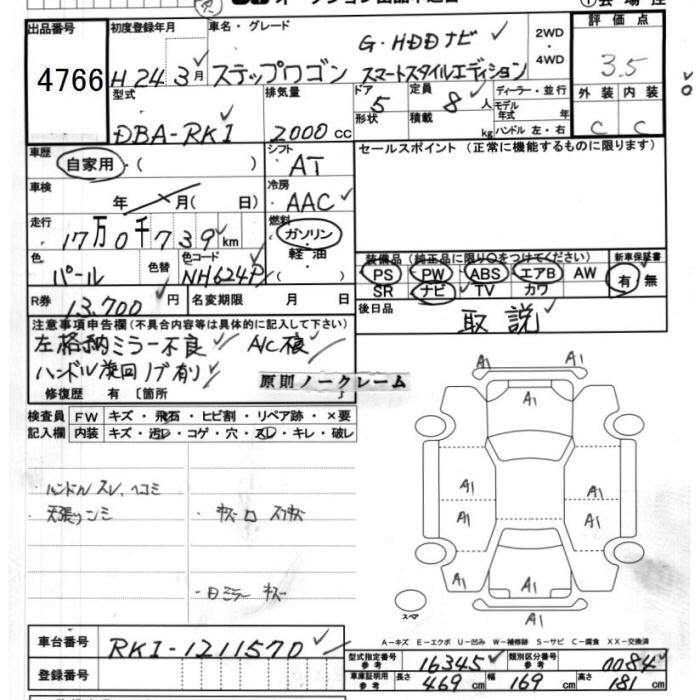 出品番号
4766
初度登録年月
H 24 3月
車名・グレード
G・HDDナビ
ステップワゴン スマートスタイルエディション
2WD
・
4WD
評価点
3.5
型式
DBA-RK1
排気量
2000cc
ドア
5
形状
定員
8人
積載
kg
ディーラー・並行
モデル
年式 年
ハンドル 左・右
外装 内装
C C
車歴
自家用・( )
シフト
AT
セールスポイント(正常に機能するものに限ります)
車検
年 月( 日)
冷房
AAC
走行
17万0千739km
燃料
ガソリン
軽油
( )
色
パール
色替
色コード
NH624P
装備品(純正品に限り○をつけてください)
PS PW ABS エアB AW
SR ナビ TV カワ
新車保証書
有・無
R券
13,700円
名変期限 月 日
後日品
取説
注意事項申告欄(不具合内容等は具体的に記入して下さい)
左格納ミラー不良 A/C不良
ハンドル旋回ノブ有り
修復歴 有 〔箇所 〕
原則ノークレーム
検査員
記入欄
FW キズ・飛石・ヒビ割・リペア跡・×要
内装 キズ・汚レ・コゲ・穴・スレ・キレ・破レ
・ハンドル スレ、ヘコミ
・天張リシミ
A1 A1
A1
A1 A1
A1 A1
A1 A1 A1
A1
スペア
A-キズ E-エクボ U-凹み W-補修跡 S-サビ C-腐食 XX-交換済
車台番号
RK1-1211570
登録番号
型式指定番号
参考
16345
類別区分番号
参考
0084
車庫証明用
参考
長さ
469cm
幅
169cm
高さ
181cm